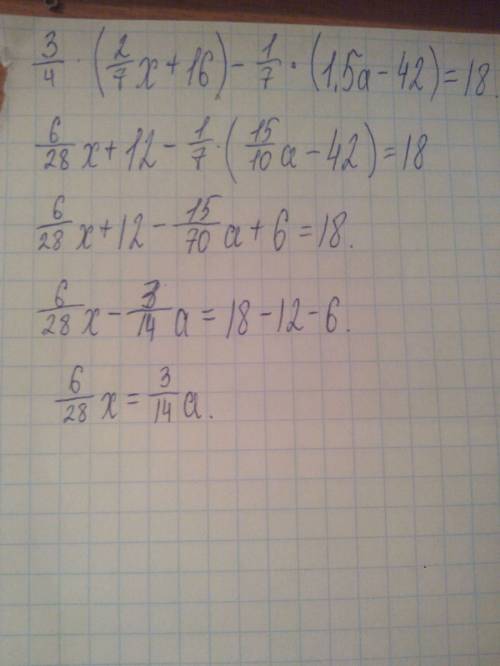 3/4 · (2/7 x + 16) - 1/7 · (1,5a - 42) = 18.
6/28 x + 12 - 1/7 · (15/10 a - 42) = 18
6/28 x + 12 - 15/70 a + 6 = 18.
6/28 x - 3/14 a = 18 - 12 - 6.
6/28 x = 3/14 a.